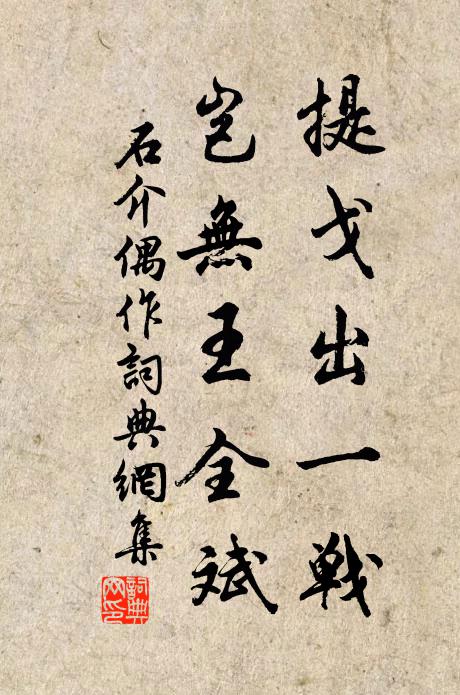 提戈出一戰
豈無王全斌
石介偶作詞典網集
詞典
网印